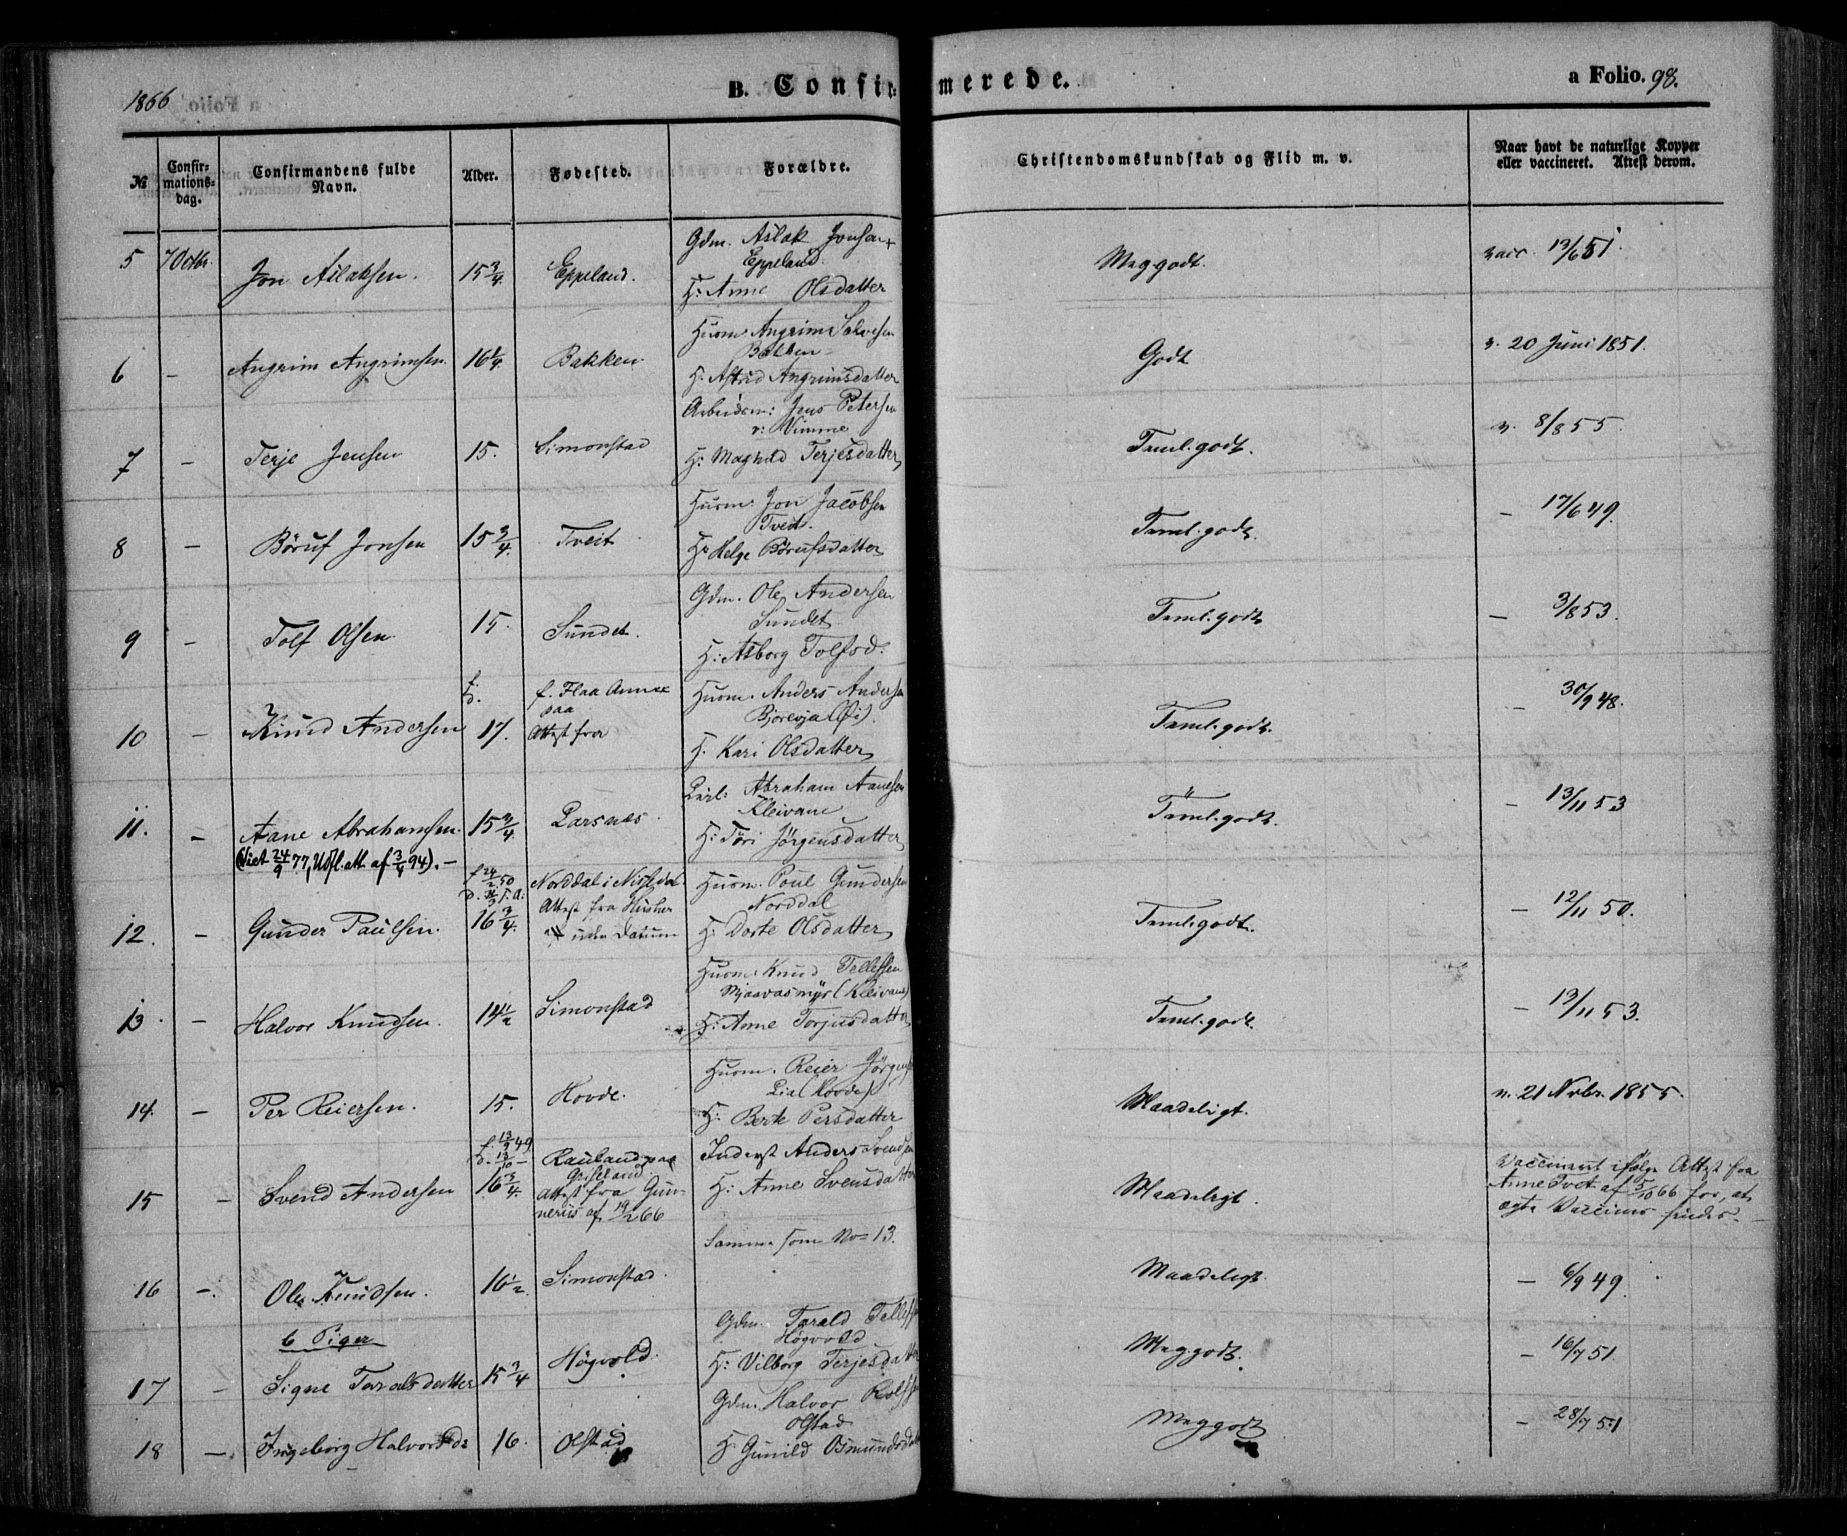 1866
B. Confirmerede.
a Folio. 98.
№
Confir-
mations-
dag.
Confirmandens fulde
Navn.
Alder.
Fødested.
Forældre.
Christendomskundskab og Flid m. v.
Naar havt de naturlige Kopper
eller vaccineret. Attest derom.
5 7 Octbr. Jon Aslaksen. 15 3/4 Eppeland.
Gdm. Aslak Jonsen
Eppeland.
H: Anne Olsdatter
Meg godt. vacc. 13/6 51.
6 – Angrim Angrimsen 16 1/4 Bakken
Huusm. Angrim Salvesen
Bakken
H. Astrid Angrimsdatter
Godt v. 20 Juni 1851.
7 – Terje Jensen 15. Simonstad
Arbeidsm: Jens Petersen
v: Nimme
H: Maghild Terjesdatter
Taml. godt. v. 8/8 55.
8 – Böruf Jonsen 15 3/4 Tveit
Huusm. Jon Jacobsen
Tveit.
H: Helge Börufsdatter
Taml. godt. – 17/6 49.
9 – Tolf Olsen 15. Sundet.
Gdm. Ole Andersen
Sundet
H: Asborg Tolfsd.
Taml. godt – 3/8 53.
10 – Knud Andersen
f.
D.
17.
f. Flaa Annex
paa
Attest fra
Huusm. Anders Andersen
Bjorevja (Øi).
H. Kari Olsdatter
Taml. godt. – 30/9 48.
11. – Aane Abrahamsen. 15 3/4 Larsnes.
(Viet 24/9 77, Udfl. att. af 3/4 94). –
Abraham Aanesen
Kleivane
H: Töri Jörgensdatter
Taml. godt. – 13/11 53
12. – Gunder Paulsen. 16 3/4
f 24/2 50
Norddal i Nissedal
Attest fra
uden Datum
Huusm. Poul Gundersen
Norddal
H. Dorte Olsdatter
Taml. godt. – 12/11 50.
13. – Halvor Knudsen. 14 1/2 Simonstad
Huusm. Knud Tellefsen
Mjaavasmyr (Kleivane)
H: Anne Torjusdatter
Taml. godt. – 13/11 53.
14. – Per Reiersen. 15. Hovde.
Huusm. Reier Jörgens
Lia (Hovde)
H: Berte Persdatter
Maadeligt. v. 21 Nvbr. 1855.
15 – Svend Andersen
f. 13/9 49
D. 13/10 –
16 3/4
Rauland paa
Attest fra Gun-
nerius af 19/2 66
Inderst Anders Svendsen
H: Anne Svensdatter
Maadeligt.
Vaccineret ifölge Attest fra
Anne Tvet af 5/10 66 for, at
ægte Vaccine findes. –
16 –. Ole Knudsen. 16 1/2 Simonstad.
Samme som No 13.
Maadeligt. – 6/9 49.
b Piger
17 – Signe Taralsdatter 15 3/4 Högvold.
Gdm. Tarald Tellefs
Högvold
H: Vilborg Terjesdatter
Meg godt. – 16/7 51.
18 –. Ingeborg Halvorsd. 16. Olstad
Gdm. Halvor Rolfs
Olstad
H: Gunild Osmundsdatt
Meg godt – 28/7 51